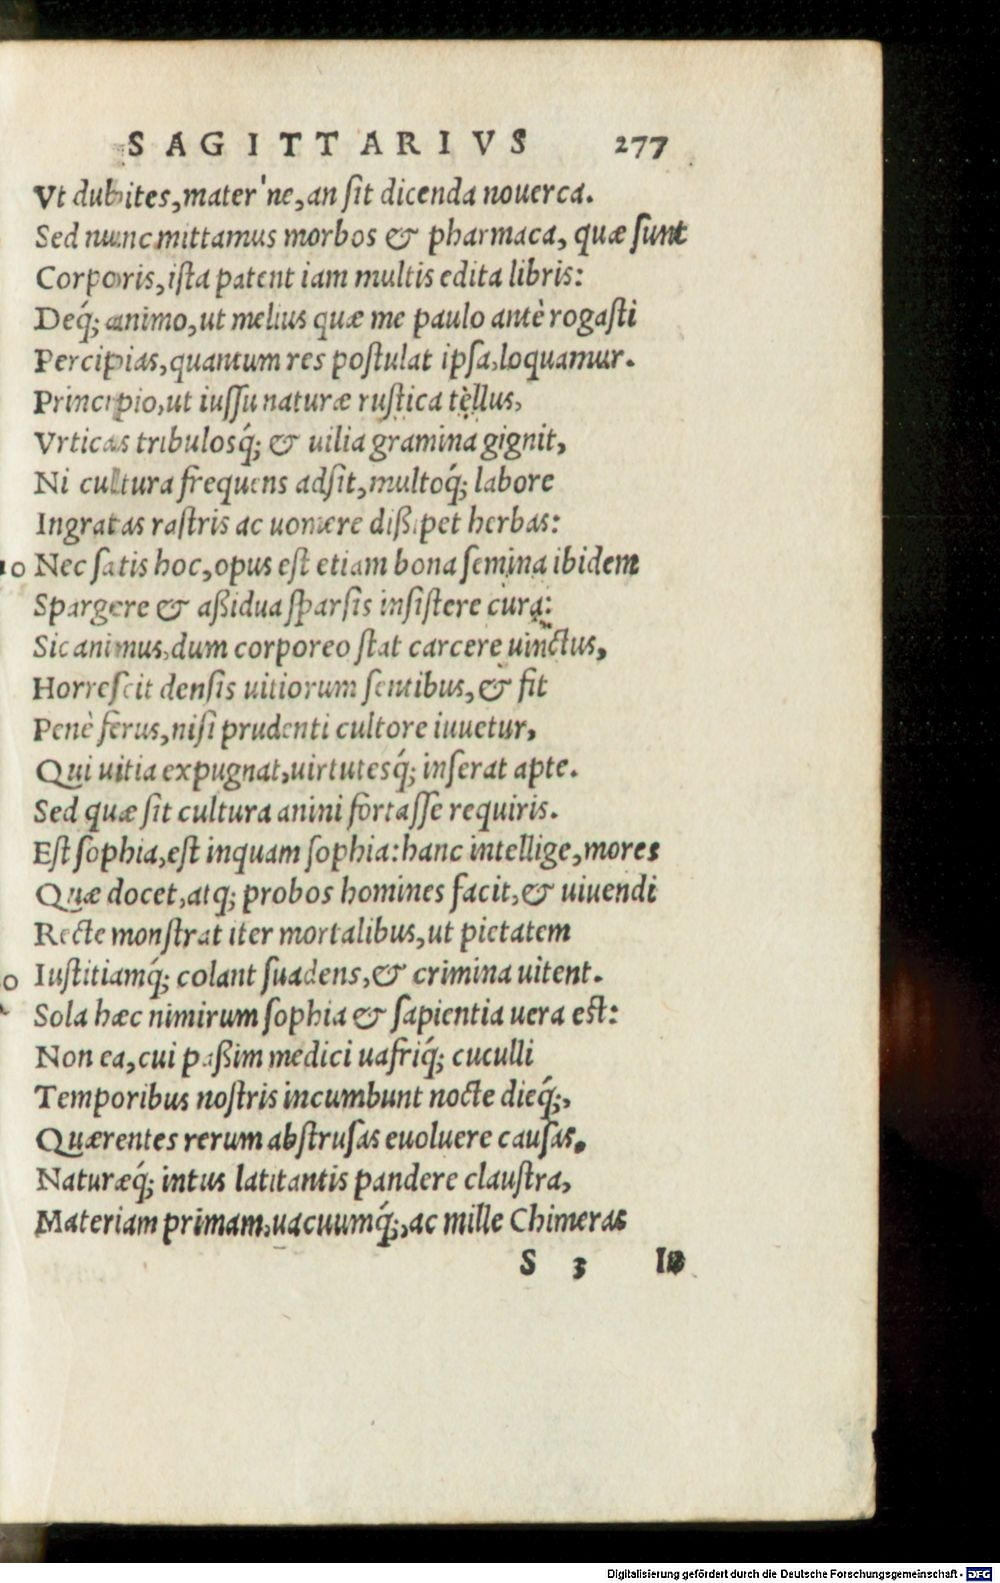 SAGITTARIVS 277
Vt dubites, mater'ne, an ſit dicenda nouerca.
Sed nunc mittamus morbos & pharmaca, quæ ſunt
Corporis, iſta patent iam multis edita libris:
Deq́; animo, ut melius quæ me paulo antè rogaſti
Percipias, quantum res poſtulat ipſa, loquamur.
Principio, ut iuſſu naturæ ruſtica tellus,
Vrticas tribulosq́; & uilia gramina gignit,
Ni cultura frequens adſit, multoq́; labore
Ingratas raſtris ac uomere dißipet herbas:
10 Nec ſatis hoc, opus eſt etiam bona ſemina ibidem
Spargere & aßidua ſparſis inſiſtere cura:
Sic animus, dum corporeo ſtat carcere uinctus,
Horreſcit denſis uitiorum ſentibus, & fit
Penè ferus, niſi prudenti cultore iuuetur,
Qui uitia expugnat, uirtutesq́; inſerat apte.
Sed quæ ſit cultura anini fortaſſe requiris.
Eſt ſophia, eſt inquam ſophia: hanc intellige, mores
Quæ docet, atq; probos homines facit, & uiuendi
Recte monſtrat iter mortalibus, ut pietatem
0 Iuſtitiamq́; colant ſuadens, & crimina uitent.
Sola hæc nimirum ſophia & ſapientia uera eſt:
Non ea, cui paßim medici uafriq́; cuculli
Temporibus noſtris incumbunt nocte dieq́;,
Quærentes rerum abſtruſas euoluere cauſas.
Naturæq́; intus latitantis pandere clauſtra,
Materiam primam, uacuumq́;, ac mille Chimeras
S 3
Digitalisierung gefördert durch die Deutsche Forschungsgemeinschaft - DFG